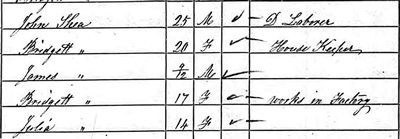 John Shea 25 M ✓ D Laborer
Bridgett " 20 F ✓ House Keeper
James " 9/12 M ✓
Bridgett " 17 F ✓ works in Factory
Julia " 14 F ✓